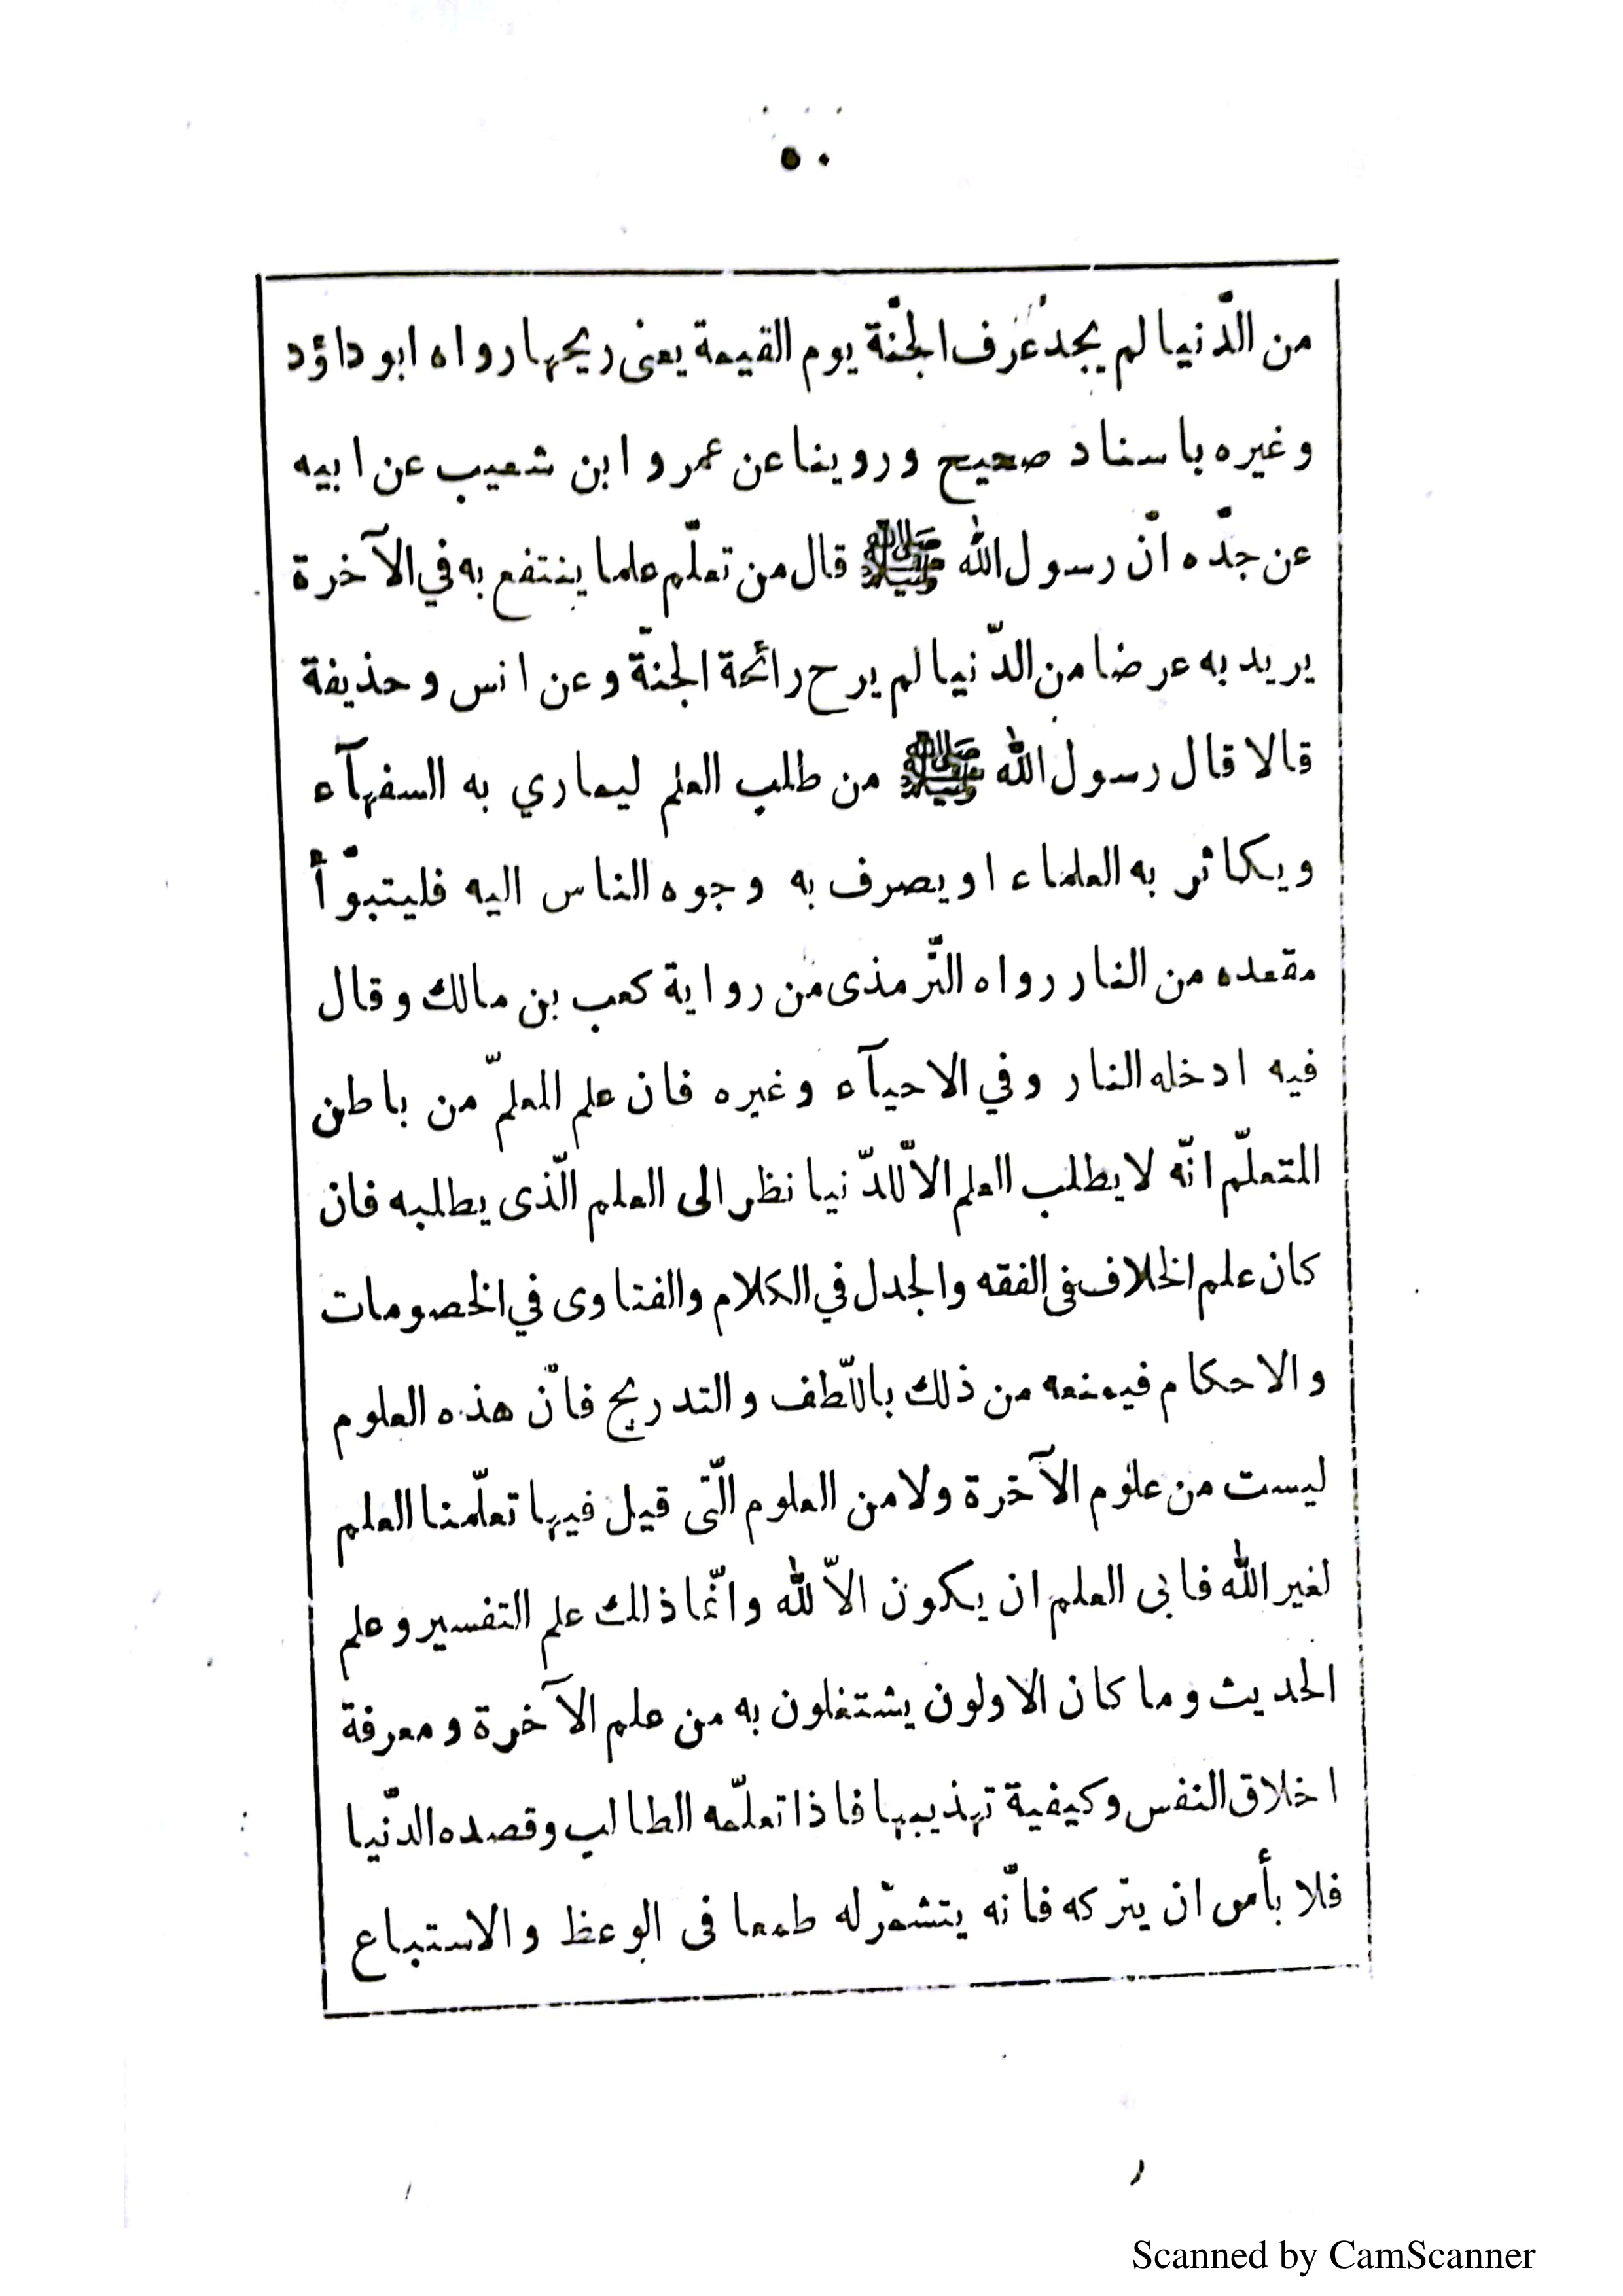 ٥٠
من الدّنيا لم يجد عَرف الجنّة يوم القيمة يعنى ريحها رواه ابو داؤد
وغيره باسناد صحيح وروينا عن عمرو ابن شعيب عن ابيه
عن جدّه انّ رسول الله ﷺ قال من تعلّم علما ينتفع به في الآخرة
يريد به عرضا من الدّنيا لم يرح رائحة الجنّة وعن انس وحذيفة
قالا قال رسول الله ﷺ من طلب العلم ليماري به السفهآء
ويكاثر به العلماء او يصرف به وجوه الناس اليه فليتبوّأ
مقعده من النار رواه التّرمذى من رواية كعب بن مالك وقال
فيه ادخله النار وفي الاحيآء وغيره فان علم المعلّم من باطن
المتعلّم انّه لا يطلب العلم الاّ للدّنيا نظر الى العلم الّذى يطلبه فان
كان علم الخلاف فى الفقه والجدل في الكلام والفتاوى في الخصومات
والاحكام فيمنعه من ذلك باللّطف والتدريج فانّ هذه العلوم
ليست من علوم الآخرة ولا من العلوم الّتى قيل فيها تعلّمنا العلم
لغير الله فابى العلم ان يكون الاّ لله وانّما ذلك علم التفسير وعلم
الحديث وما كان الاولون يشتغلون به من علم الآخرة ومعرفة
اخلاق النفس وكيفية تهذيبها فاذا تعلّمه الطالب وقصده الدّنيا
فلا بأس ان يتركه فانّه يتشمّر له طمعا فى الوعظ والاستباع
Scanned by CamScanner